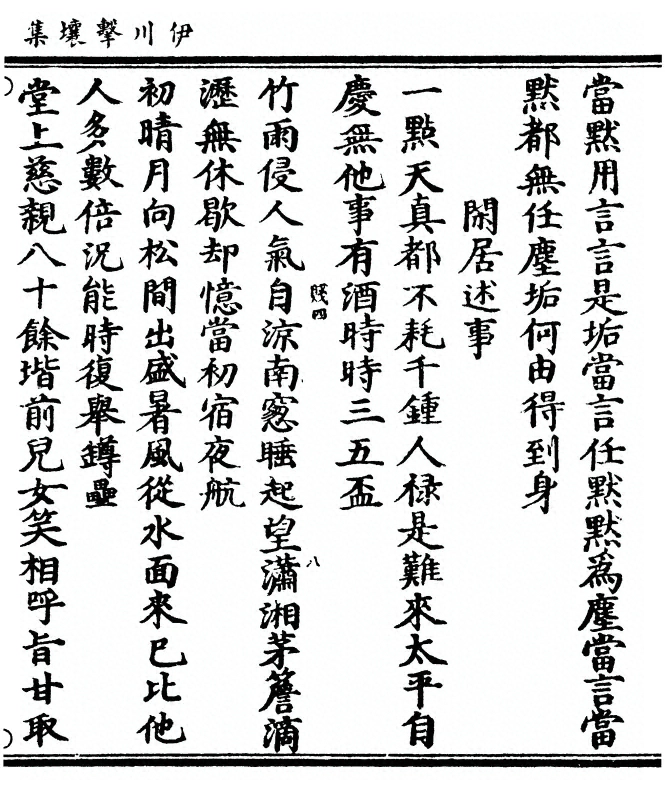 伊川擊壤集
當默用言言是垢當言任默默爲塵當言當
默都無任塵垢何由得到身
閑居述事
一點天真都不耗千鍾人禄是難來太平自
慶無他事有酒時時三五盃
賤四
竹雨侵人氣自涼南窻睡起望瀟湘茅簷滴
八
瀝無休歇却憶當初宿夜航
初晴月向松間出盛暑風從水面來已比他
人多數倍況能時復舉罇罍
堂上慈親八十餘堦前兒女笑相呼旨甘取